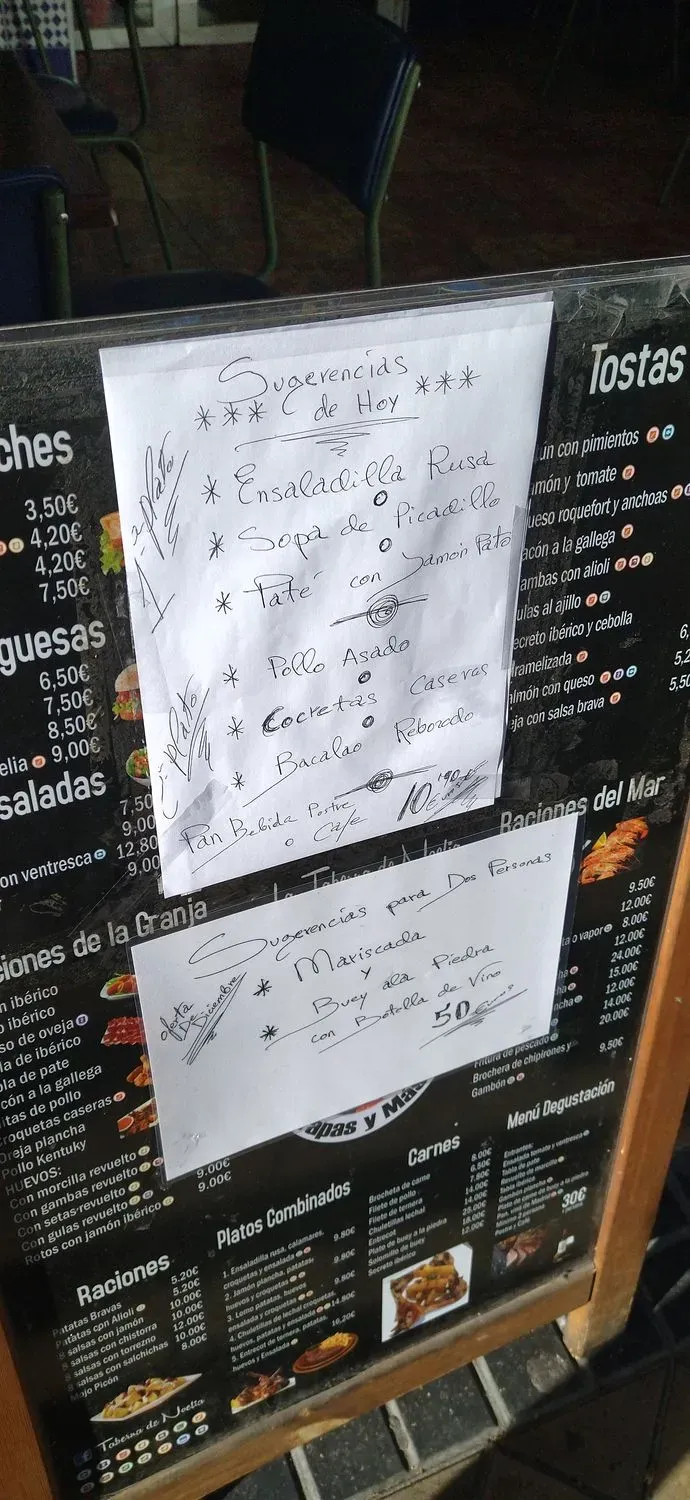 Sugerencias
*** de Hoy ***
1=plato
* Ensaladilla Rusa
* Sopa de Picadillo
* Paté con Jamon Pato
2=plato
* Pollo Asado
* Cocretas Caseras
* Bacalao Reborado
Pan Bebida Postre
o Cafe
10'90 Euros
Sugerencias para Dos Personas
oferta De Diciembre
* Mariscada
y
* Buey ala Piedra
con Botella de Vino
50 Euros
ches
3,50€
4,20€
4,20€
7,50€
guesas
6,50€
7,50€
8,50€
elia 9,00€
saladas
7,50
9,00
12,80
on ventresca 9,00
Tostas
ún con pimientos
món y tomate
ueso roquefort y anchoas
acón a la gallega
ambas con alioli
ulas al ajillo
ecreto ibérico y cebolla
aramelizada
almón con queso
eja con salsa brava
6,
5,2
5,50
La Taberna de Noelia
Raciones del Mar
9.50€
12.00€
o vapor 8.00€
12.00€
24.00€
15.00€
12.00€
14.00€
20.00€
Fritura de pescado
Brocheta de chipirones y
Gambón
9,50€
iones de la Granja
n ibérico
o ibérico
so de oveja
la de ibérico
bla de pate
cón a la gallega
itas de pollo
roquetas caseras
Oreja plancha
Pollo Kentuky
HUEVOS:
Con morcilla revuelto
Con gambas revuelto
Con setas revuelto
Con gulas revuelto
Rotos con jamón ibérico
9.00€
9.00€
apas y Ma
Raciones
Patatas Bravas 5.20€
Patatas con Alioli 5.20€
8 salsas con jamón 10.00€
8 salsas con chistorra 10.00€
8 salsas con torrezno 12.00€
8 salsas con salchichas 10.00€
Mojo Picón 8.00€
Platos Combinados
1. Ensaladilla rusa, calamares,
croquetas y ensalada 9.80€
2. Jamón plancha, patatas,
huevos y croquetas 9.80€
3. Lomo patatas, huevos
ensalada y croquetas 9.80€
4. Chuletillas de lechal croquetas
huevos, patatas y ensalada 14.80€
5. Entrecot de ternera, patatas,
huevos y Ensalada 16,20€
Carnes
Brocheta de carne 8.00€
Filete de pollo 6.50€
Filete de ternera 7.80€
Chuletillas lechal 14.00€
Entrecot 14.00€
Plato de buey a la piedra 25.00€
Solomillo de buey 18.00€
Secreto ibérico 12.00€
Menú Degustación
Entrantes:
Ensalada tomate y ventresca
Tabla de pate
Revuelto de morcilla
Tabla ibérica
Gambón plancha
Plato de carne de buey a la piedra
Mínimo 2 personas
Postre y Café
30€
Taberna de Noelia